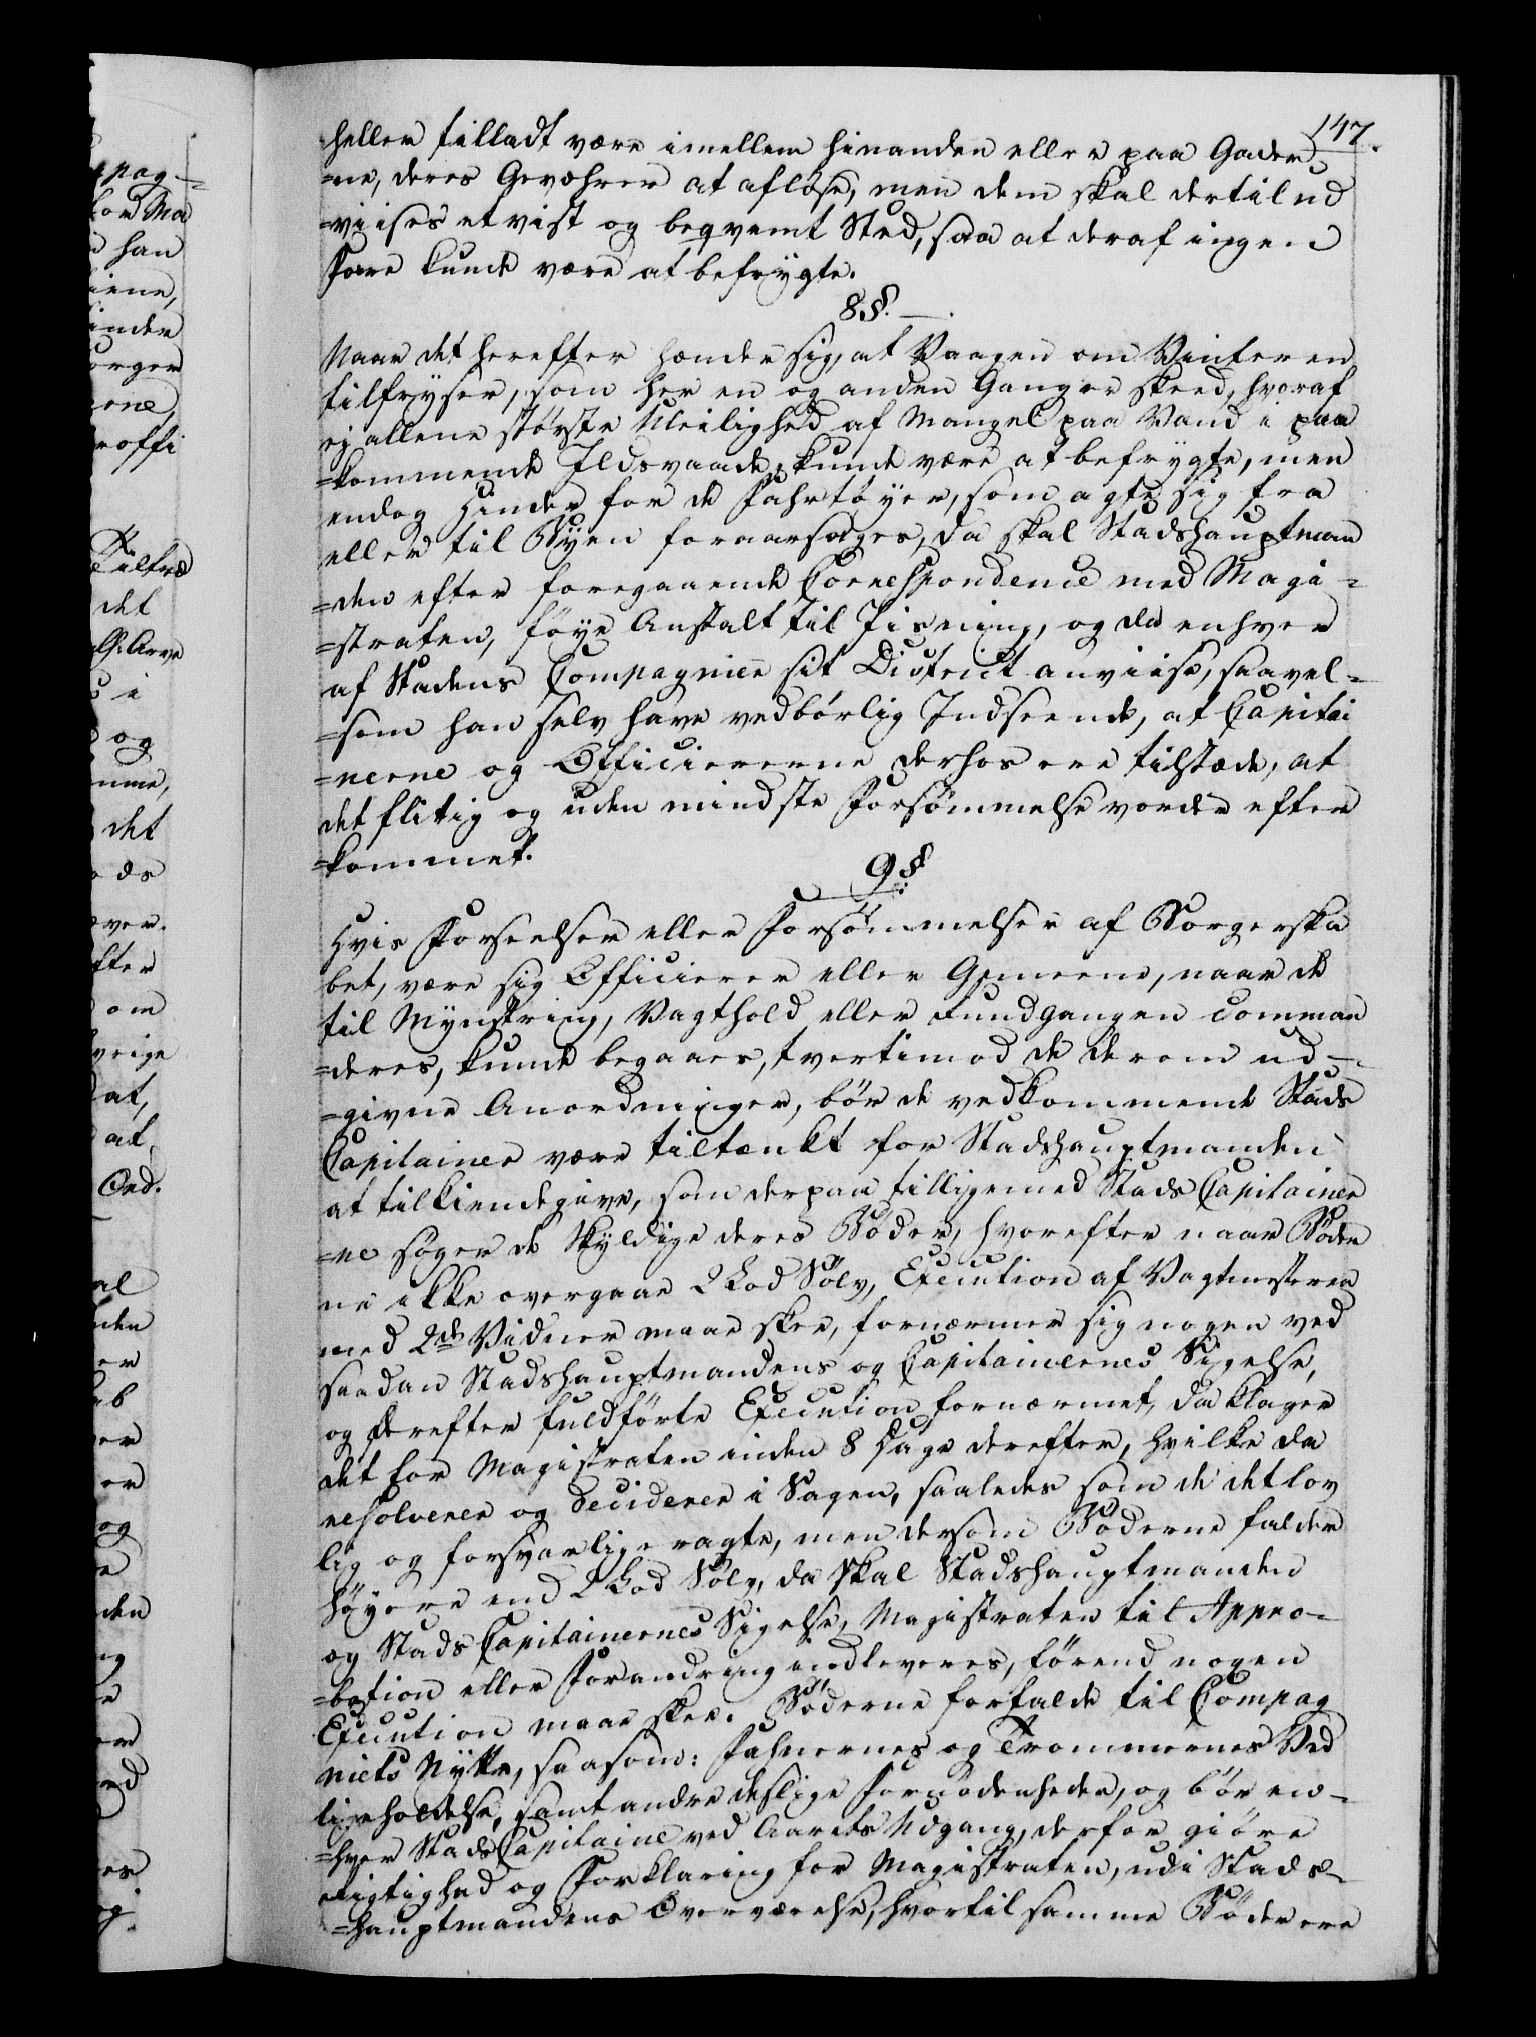 147.
heller tilladt være imellem hinanden eller paa Gader
=ne, deres Gevæhrer at afløse, men dem skal dertil ud
=viises et vist og beqvemt Sted, saa at deraf ingen
Fare kunde være at befrygte.
8§.
Naar det herefter hænder sig, at Vaagen om Vinteren
tilfryser, som her en og anden Gang er skeed, hvoraf
ej allene største Uleilighed af Mangel paa Vand i paa
=kommende Ildsvaade, kunde være at befrygte, men
endog Hinder for de Fahrtøyer, som agte sig fra
eller til Byen foraarsages, da skal Stadshauptman
=den efter foregaaende Correspondence med Magi=
=straten, føye Anstalt til Jisning, og da enhver
af Stadens Compagnier sit District anviise, saavel=
=som han selv have vedbørlig Indseende, at Capitai
=nerne og Officiererne derhos ere tilstæde, at
det flitig og uden mindste Forsømmelse vorder efter
=kommet.
9§
Hvis Forseelser eller Forsømmelser af Borgerska
bet, være sig Officierer eller Gemeene, naar de
til Mynstring, Vagthold eller Rundgangen comman
=deres, kunde begaaes, tvertimod de derom ud=
=givne Anordninger, bør de vedkommende Stads
Capitainer være tiltænkt for Stadshauptmanden
at tilkiendegive, som derpaa tilligemed Stads Capitainer
=ne søger de Skyldige deres Bøder, hvorefter naar Bøder
ne ikke overgaar 2 Lod Sølv, Execution af Vagtmesteren
med 2de Vidner maae skee, fornærmer sig nogen ved
saadan Stadshauptmandens og Capitainernes Sigelse,
og derefter fuldførte Execution fornærmet, da klager
det for Magistraten inden 8 Dage derefter, hvilke da
resolverer og deciderer i Sagen, saaledes som de det lov
lig og forsvarlig eragte, men dersom Bøderne falder
høyere end 2 Lod Sølv, da skal Stadshauptmanden
og Stads Capitainernes Sigelse, Magistraten til Appro=
=bation eller Forandring indleveres, førend nogen
Execution maae skee. Bøderne forfalde til Compag
niets Nytte, saasom: Fahnernes og Trommernes Ved
ligeholdelse, samt andre deslige Fornødenheder, og bør en=
=hver Stads Capitaine ved Aarets Udgang, derfor giøre
Rigtighed og Forklaring for Magistraten, udi Stads=
=hauptmandens Overværelse, hvortil samme Bøder ere